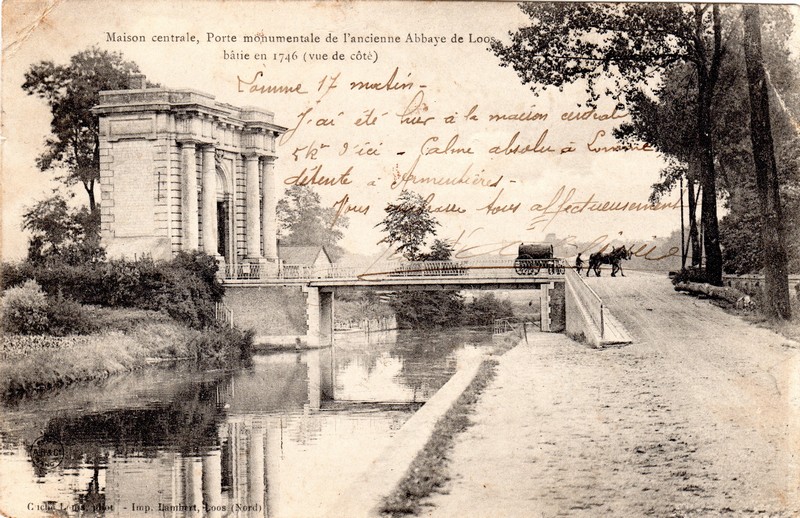 Maison centrale, Porte monumentale de l'ancienne Abbaye de Loos
bâtie en 1746 (vue de côté)
Lomme 17 matin -
J'ai été hier à la maison centrale
5k d'ici - Calme absolu à Lomme
détente à Armentières -
Vous embrasse tous affectueusement
Cliché phot - Imp. Lambert, Loos (Nord)